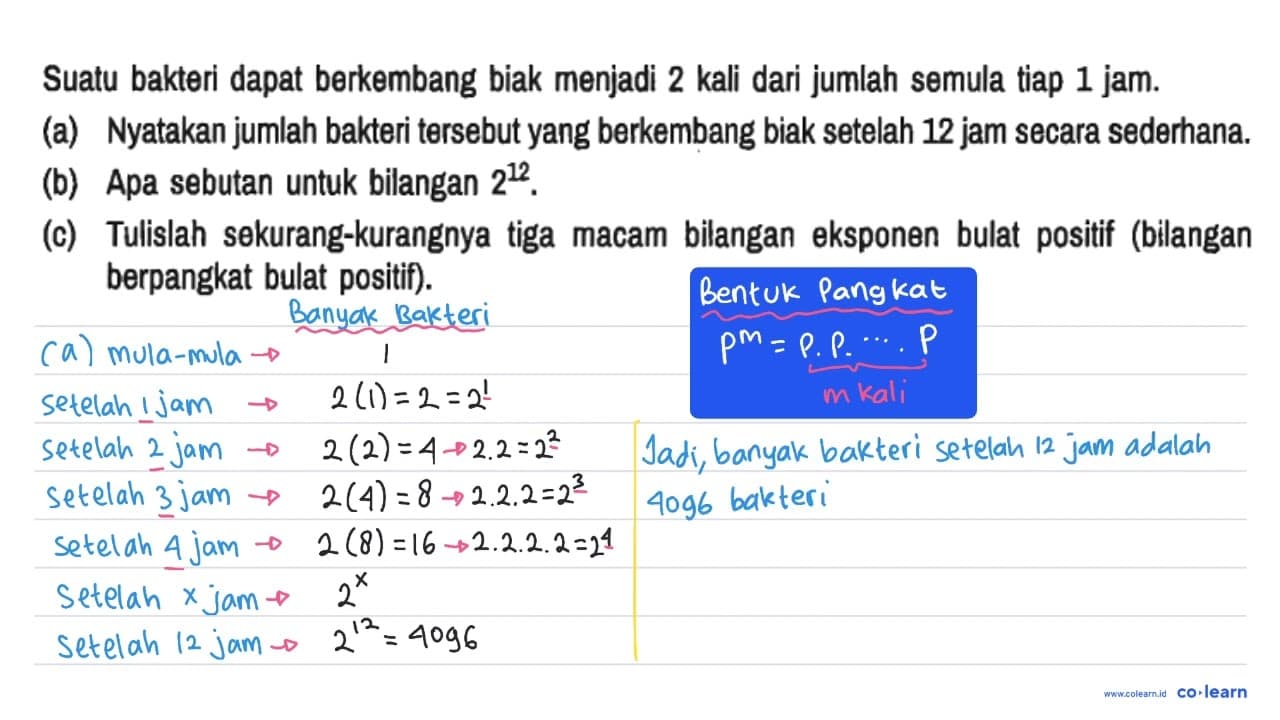 Suatu bakteri dapat berkembang biak menjadi 2 kali dari jumlah semula tiap 1 jam.
(a) Nyatakan jumlah bakteri tersebut yang berkembang biak setelah 12 jam secara sederhana.
(b) Apa sebutan untuk bilangan 2¹².
(c) Tulislah sekurang-kurangnya tiga macam bilangan eksponen bulat positif (bilangan
berpangkat bulat positif).
Banyak Bakteri
(a) mula-mula → 1
setelah 1 jam → 2(1) = 2 = 2¹
setelah 2 jam → 2(2) = 4 → 2.2 = 2²
setelah 3 jam → 2(4) = 8 → 2.2.2 = 2³
setelah 4 jam → 2(8) = 16 → 2.2.2.2 = 2⁴
setelah x jam → 2ˣ
setelah 12 jam → 2¹² = 4096
Bentuk Pangkat
pᵐ = p.p. .... p
m kali
Jadi, banyak bakteri setelah 12 jam adalah
4096 bakteri
www.colearn.id co·learn